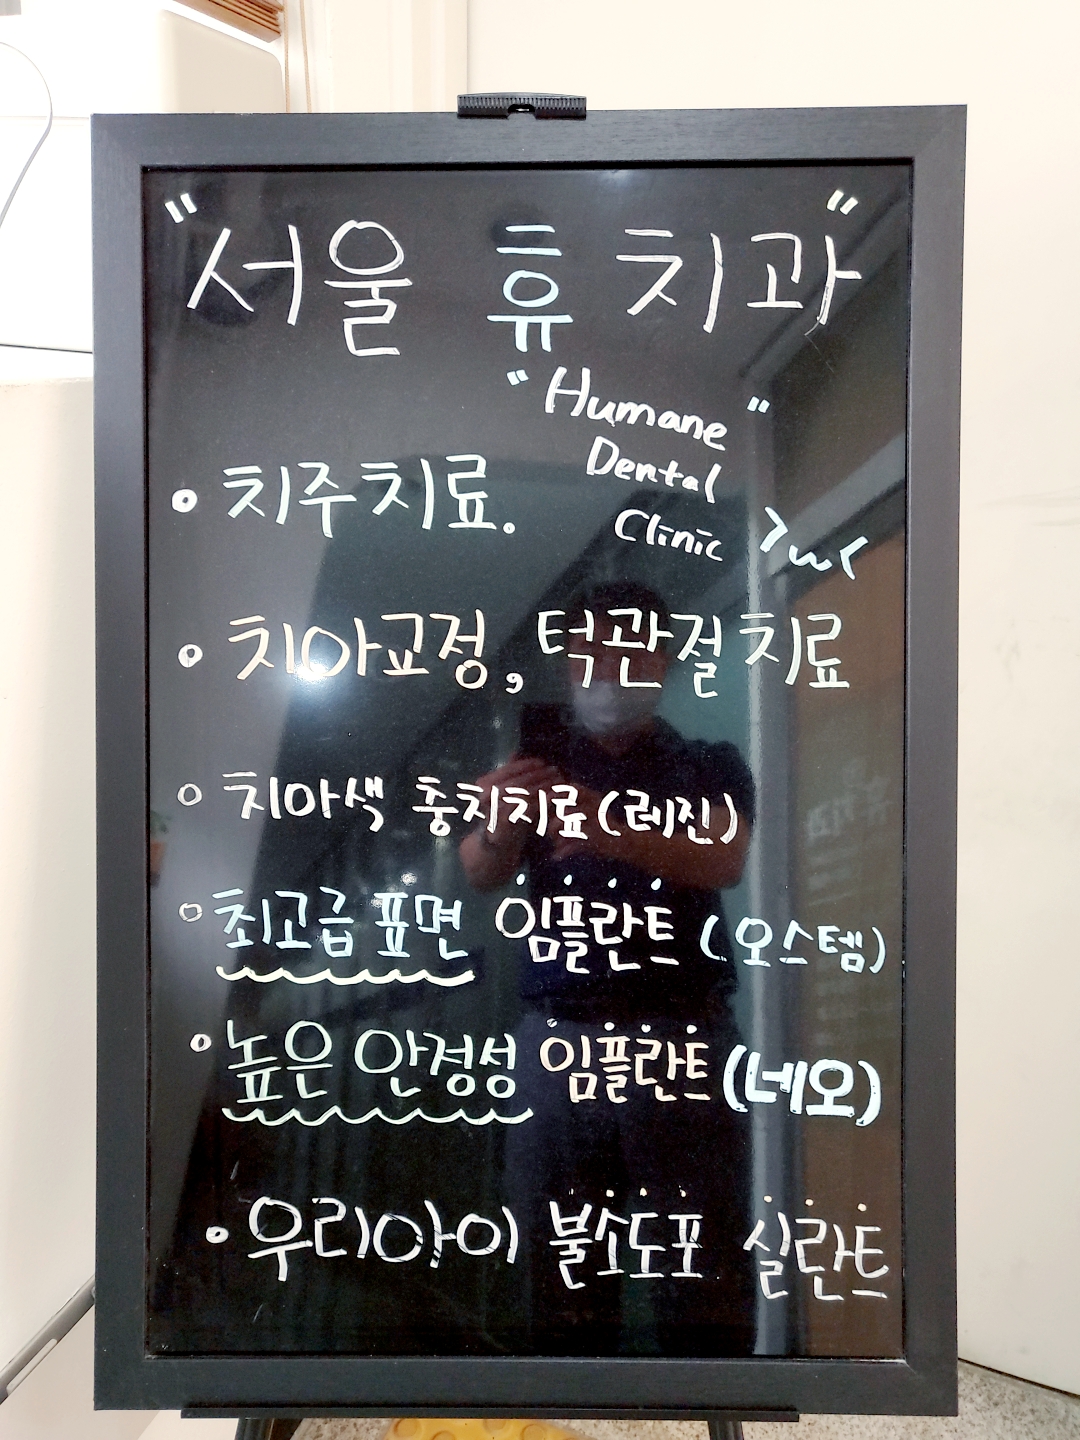 "서울 휴 치과"
"Humane"
Dental
Clinic >w<
• 치주치료.
• 치아교정, 턱관절 치료
• 치아색 충치치료(레진)
• 최고급 표면 임플란트 (오스템)
• 높은 안정성 임플란트 (네오)
• 우리아이 불소도포 실란트